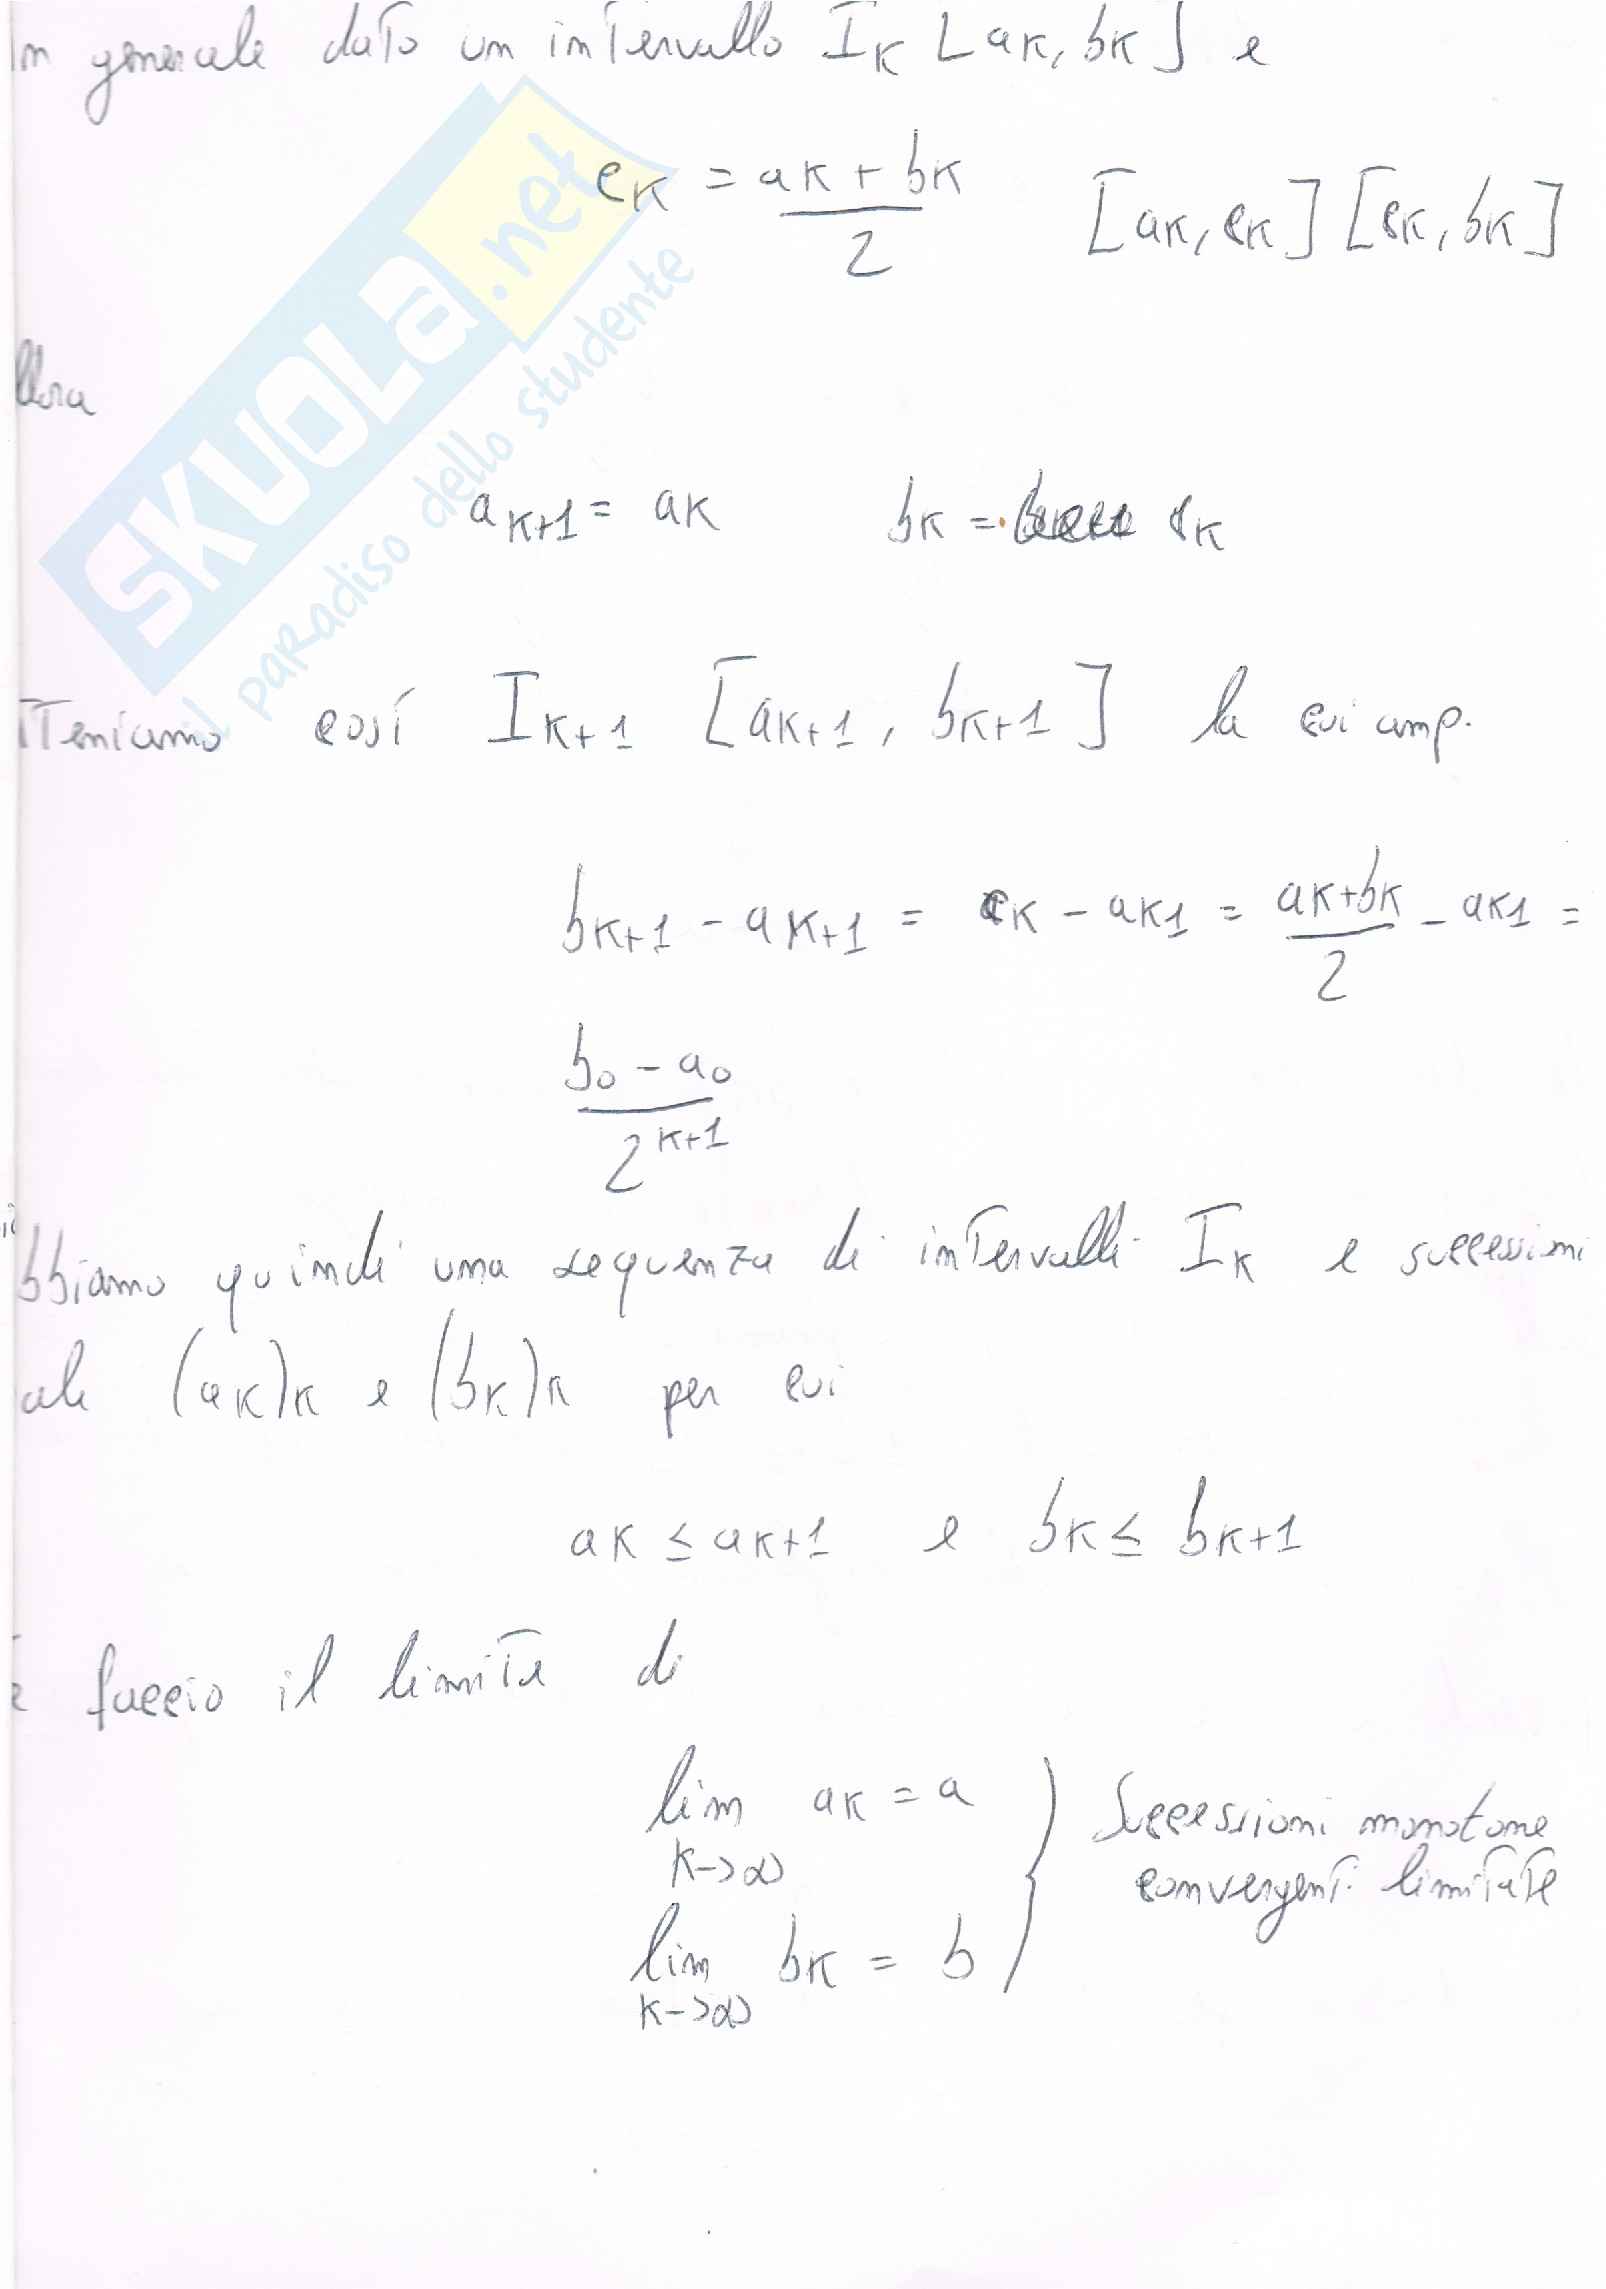 In generale dato un intervallo I_K [a_K, b_K] e
c_K = (a_K + b_K)/2 [a_K, c_K] [c_K, b_K]
llora
a_{K+1} = a_K b_K = c_K
tteniamo così I_{K+1} [a_{K+1}, b_{K+1}] la cui amp.
b_{K+1} - a_{K+1} = c_K - a_{K1} = (a_K + b_K)/2 - a_{K1} =
(b_0 - a_0)/2^{K+1}
bbiamo quindi una sequenza di intervalli I_K e successioni
ali (a_K)_K e (b_K)_K per cui
a_K ≤ a_{K+1} e b_K ≤ b_{K+1}
e faccio il limite di
lim a_K = a
K->∞
lim b_K = b
K->∞
Successioni monotone
convergenti limitate
SKUOLA.net
il paradiso dello studente